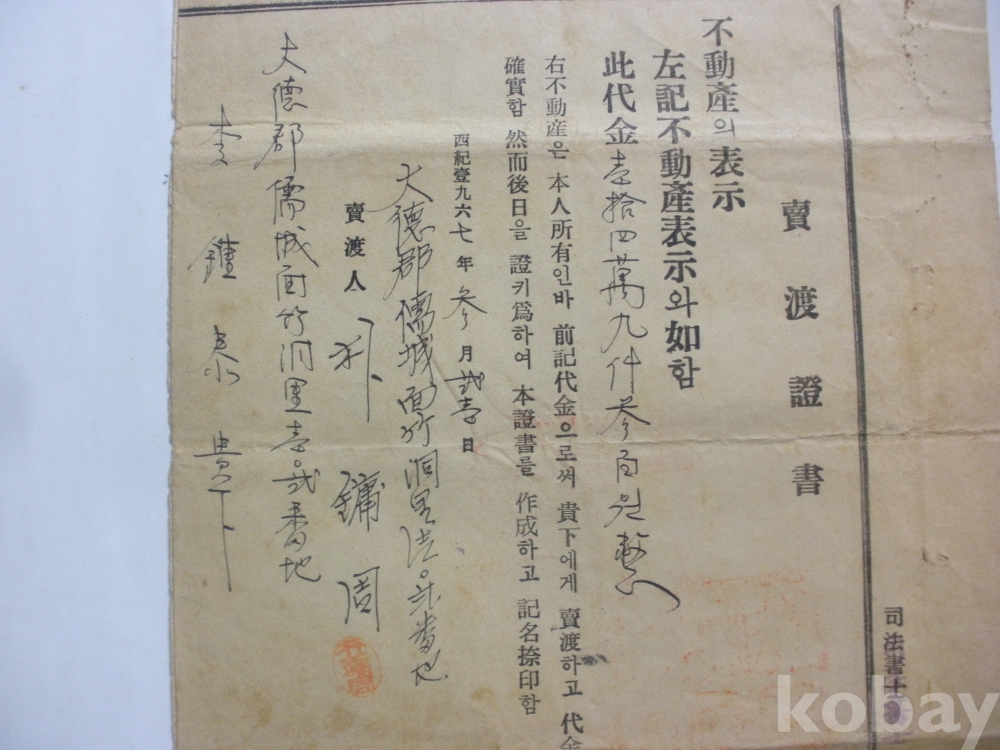 賣渡證書
不動產의表示
左記不動產表示와如함
此代金壹拾四萬九仟參百원整
右不動産은 本人所有인바 前記代金으로써 貴下에게 賣渡하고 代金
確實함 然而後日을 證키爲하여 本證書를 作成하고 記名捺印함
西紀壹九六七年 參月 貳壹日
大德郡 儒城面竹洞里 番地
賣渡人 鏞周
大德郡儒城面竹洞里壹〇貳番地
李鍾泰 貴下
司法書士
kobay